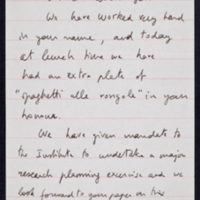 We have worked very hard
in your name, and today
at lunch time we have
had an extra plate of
"spaghetti alle vongole" in your
honour.
We have given mandate to
the Institute to undertake a major
research planning exercise and we
look forward to your paper on this